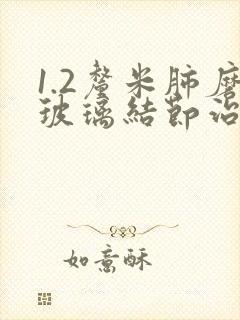 1.2釐米肺磨
玻璃結節治
如意酥